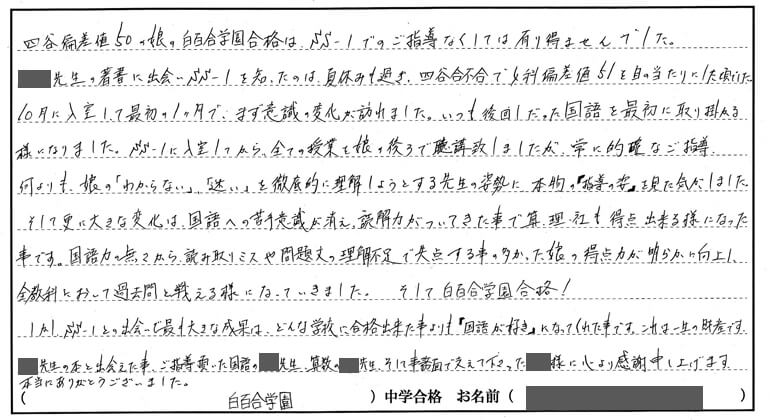 四谷偏差値50の娘の白百合学園合格は、SS-1でのご指導なくしては有り得ませんでした。
先生の著書に出会いSS-1を知ったのは、夏休みも過ぎ、四谷合不合で4科偏差値51を目の当たりにした頃でした。
10月に入室して最初の1ヶ月で、まず意識の変化が訪れました。いつも後回しだった国語を最初に取り掛かる
様になりました。SS-1に入室してから、全ての授業を娘の後ろで聴講致しましたが、常に的確なご指導、
何よりも、娘の「わからない」、「迷い」を徹底的に理解しようとする先生の姿勢に、本物の『指導の姿』を見た気がしました。
そして更に大きな変化は、国語への苦手意識が消え、読解力がついてきた事で算・理・社も得点出来る様になった
事です。国語力の無さから、読み取りミスや問題文の理解不足で失点する事の多かった娘の得点力が明らかに向上し、
全教科において過去問と戦える様になっていきました。 そして白百合学園合格!
しかしSS-1との出会いで最も大きな成果は、どんな学校に合格出来た事よりも『国語が好き』になってくれた事です。これは一生の財産です。
先生の本と出会えた事、ご指導頂いた国語の 先生、算数の 先生、そして事務面で支えて下さった 様に心より感謝申し上げます。
本当にありがとうございました。
( 白百合学園 ) 中学合格 お名前 (